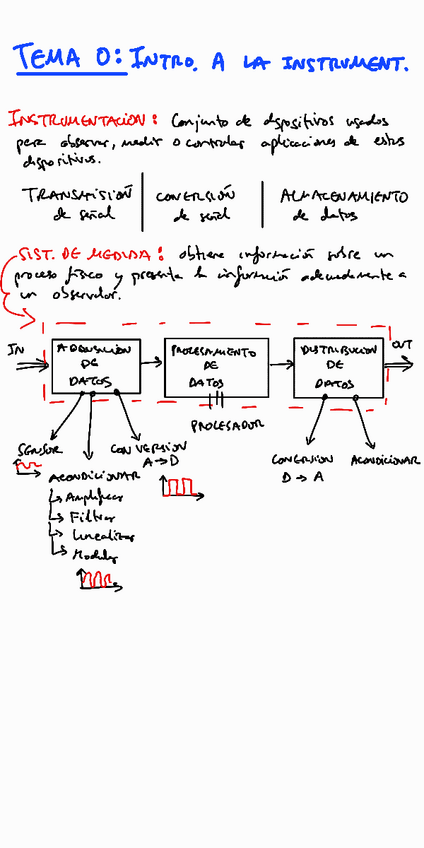 TEMA 0: INTRO. A LA INSTRUMENT.
INSTRUMENTACIÓN: Conjunto de dispositivos usados
para observar, medir o controlar aplicaciones de estos
dispositivos.
TRANSMISIÓN de señal
CONVERSIÓN de señal
ALMACENAMIENTO de datos
SIST. DE MEDIDA: obtiene información sobre un
proceso físico y presenta la información adecuadamente a
un observador.
IN
ADQUISICION
DE
DATOS
PROCESAMIENTO
DE
DATOS
DISTRIBUCION
DE
DATOS
OUT
PROCESADOR
SENSOR
CONVERSION
A → D
ACONDICIONAR
Amplificar
Filtrar
Linealizar
Modular
CONVERSION
D → A
ACONDICIONAR